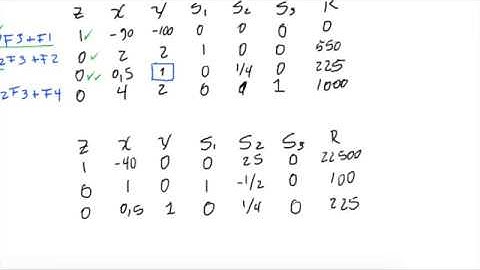 Z X Y S₁ S₂ S₃ R
F3+F1 1 -90 -100 0 0 0 0
F3+F2 0 2 2 1 0 0 550
0 0,5 1 0 1/4 0 225
2F3+F4 0 4 2 0 0 1 1000
Z X Y S₁ S₂ S₃ R
1 -40 0 0 25 0 22500
0 1 0 1 -1/2 0 100
0 0,5 1 0 1/4 0 225